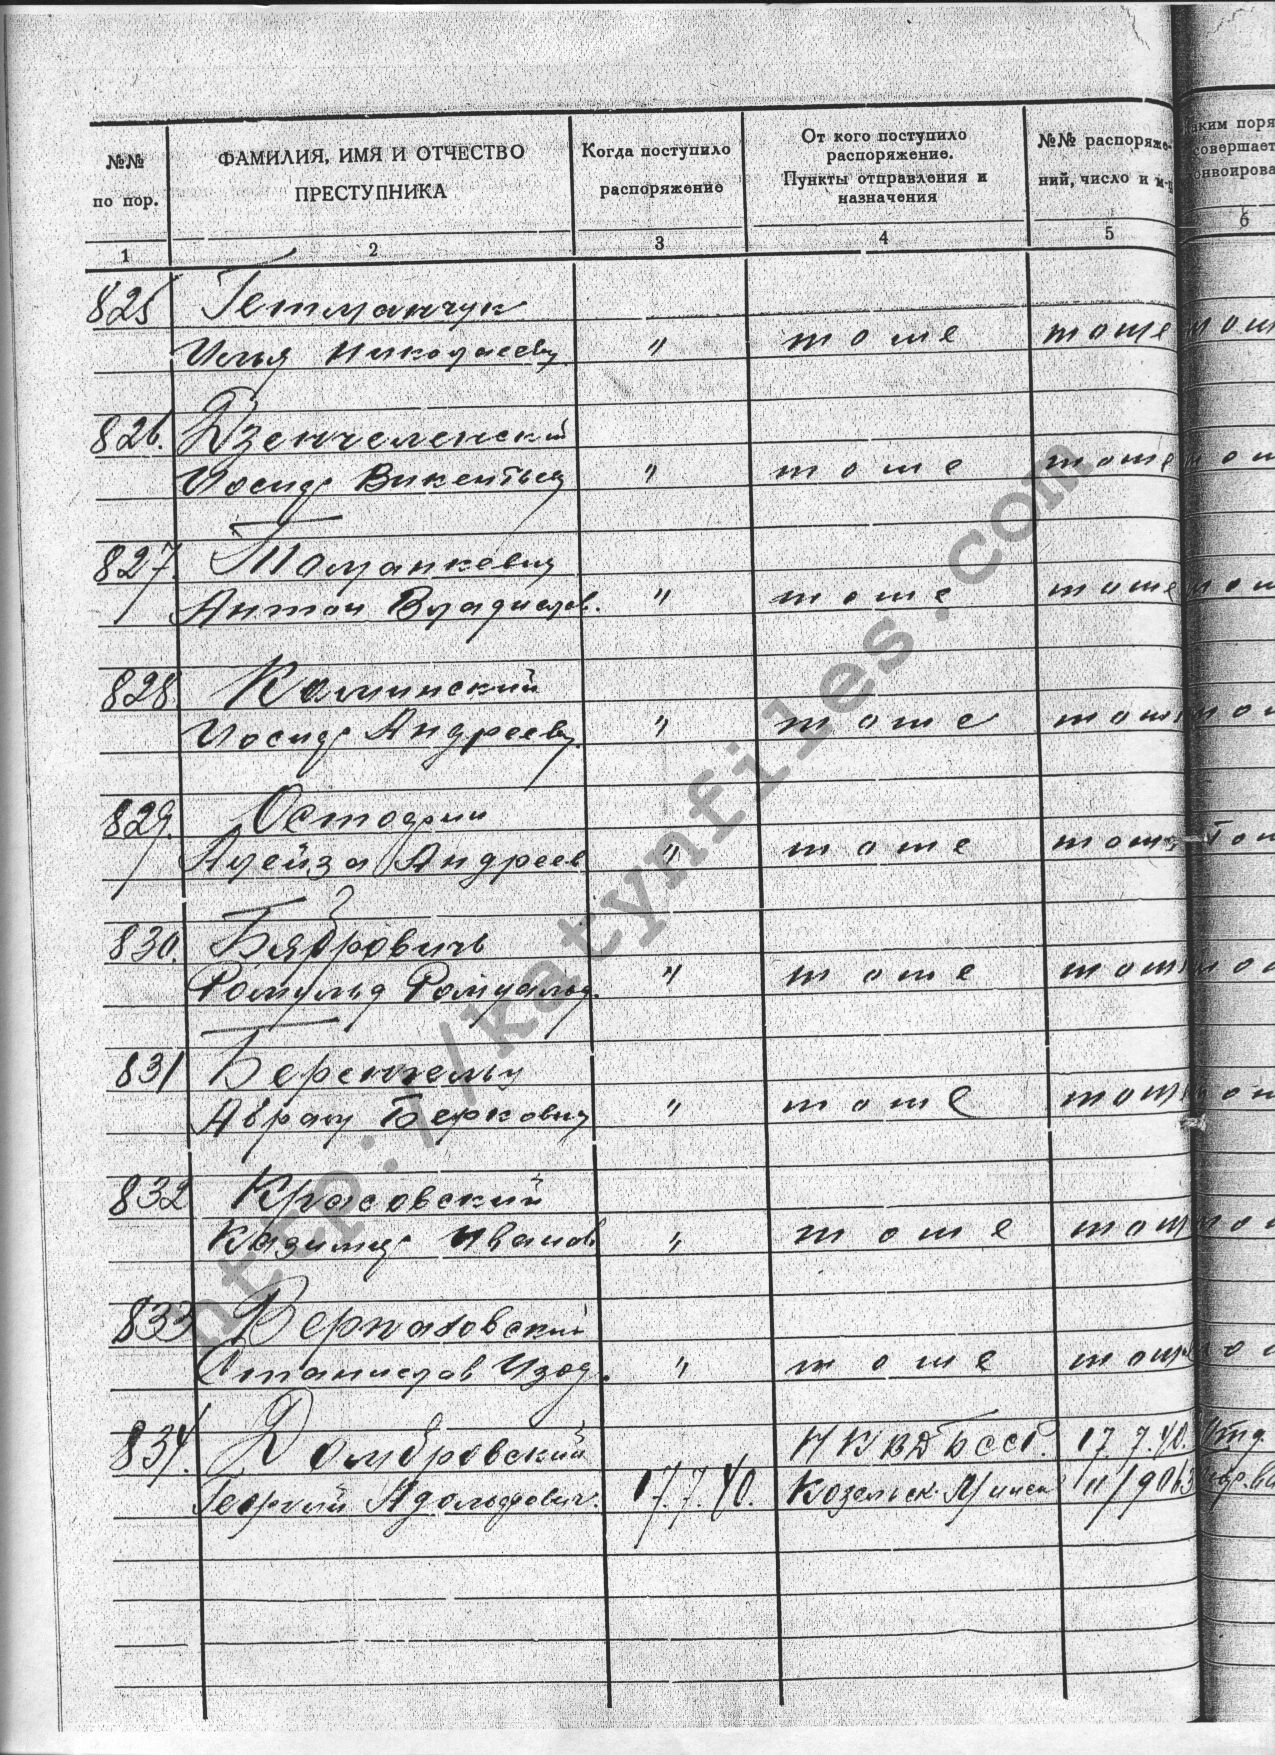 №№ по пор.
ФАМИЛИЯ, ИМЯ И ОТЧЕСТВО ПРЕСТУПНИКА
Когда поступило распоряжение
От кого поступило распоряжение. Пункты отправления и назначения
№№ распоряже- ний, число и м-ц
аким поря совершает онвоирова
1 2 3 4 5 6
825 Гетманчук
Илья Николаевич " тоже тоже
826. Дзенчеленский
Иосиф Викентьев " тоже тоже
827. Томанкевич
Антон Владислав. " тоже тоже
828. Каминский
Иосиф Андреевич " тоже тоже
829. Остафин
Алейза Андреев " тоже тоже
830.
Ромульд Ромуальд. " тоже тоже
831
Абрам Беркович " тоже тоже
832 Красовский
Казимир Иванов " тоже тоже
833
Станислав Изод. " тоже тоже
834. Домбровский НКВД БССР. 17.7.40.
Георгий Адольфович. 17.7.40. Козельск-Минск 11/9063
http://katynfiles.com